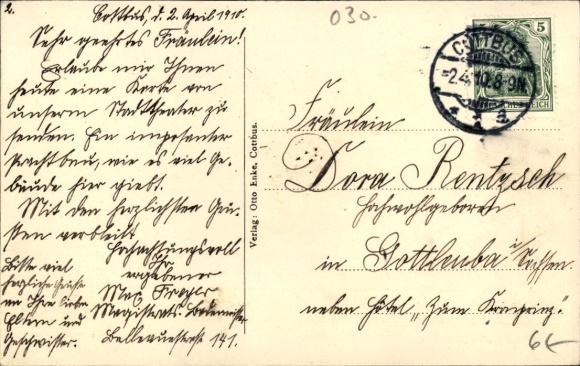 2.
Cottbus, d. 2. April 1910.
Sehr geehrtes Fräulein!
Erlaube mir Ihnen
heute eine Karte von
unserm Stadttheater zu
senden. Ein imposanter
Prachtbau, wie es viel Ge-
bäude hier giebt.
Mit den herzlichsten Grü-
ßen verbleibt
Hochachtungsvoll
Ihr
ergebener
Max
Magistrats
Bellevuestraße 141.
Bitte viel
herzliche Grüße
an Ihre lieben
Eltern und
Geschwister.
Verlag: Otto Enke, Cottbus.
030.
5
COTTBUS
-2.4.10.8-9N.
* 1 a
REICH
Fräulein
Dora Rentzsch
Hochwohlgeboren
in Gottleuba i/Sachsen.
neben Hôtel „Zum Kronprinz".
6€